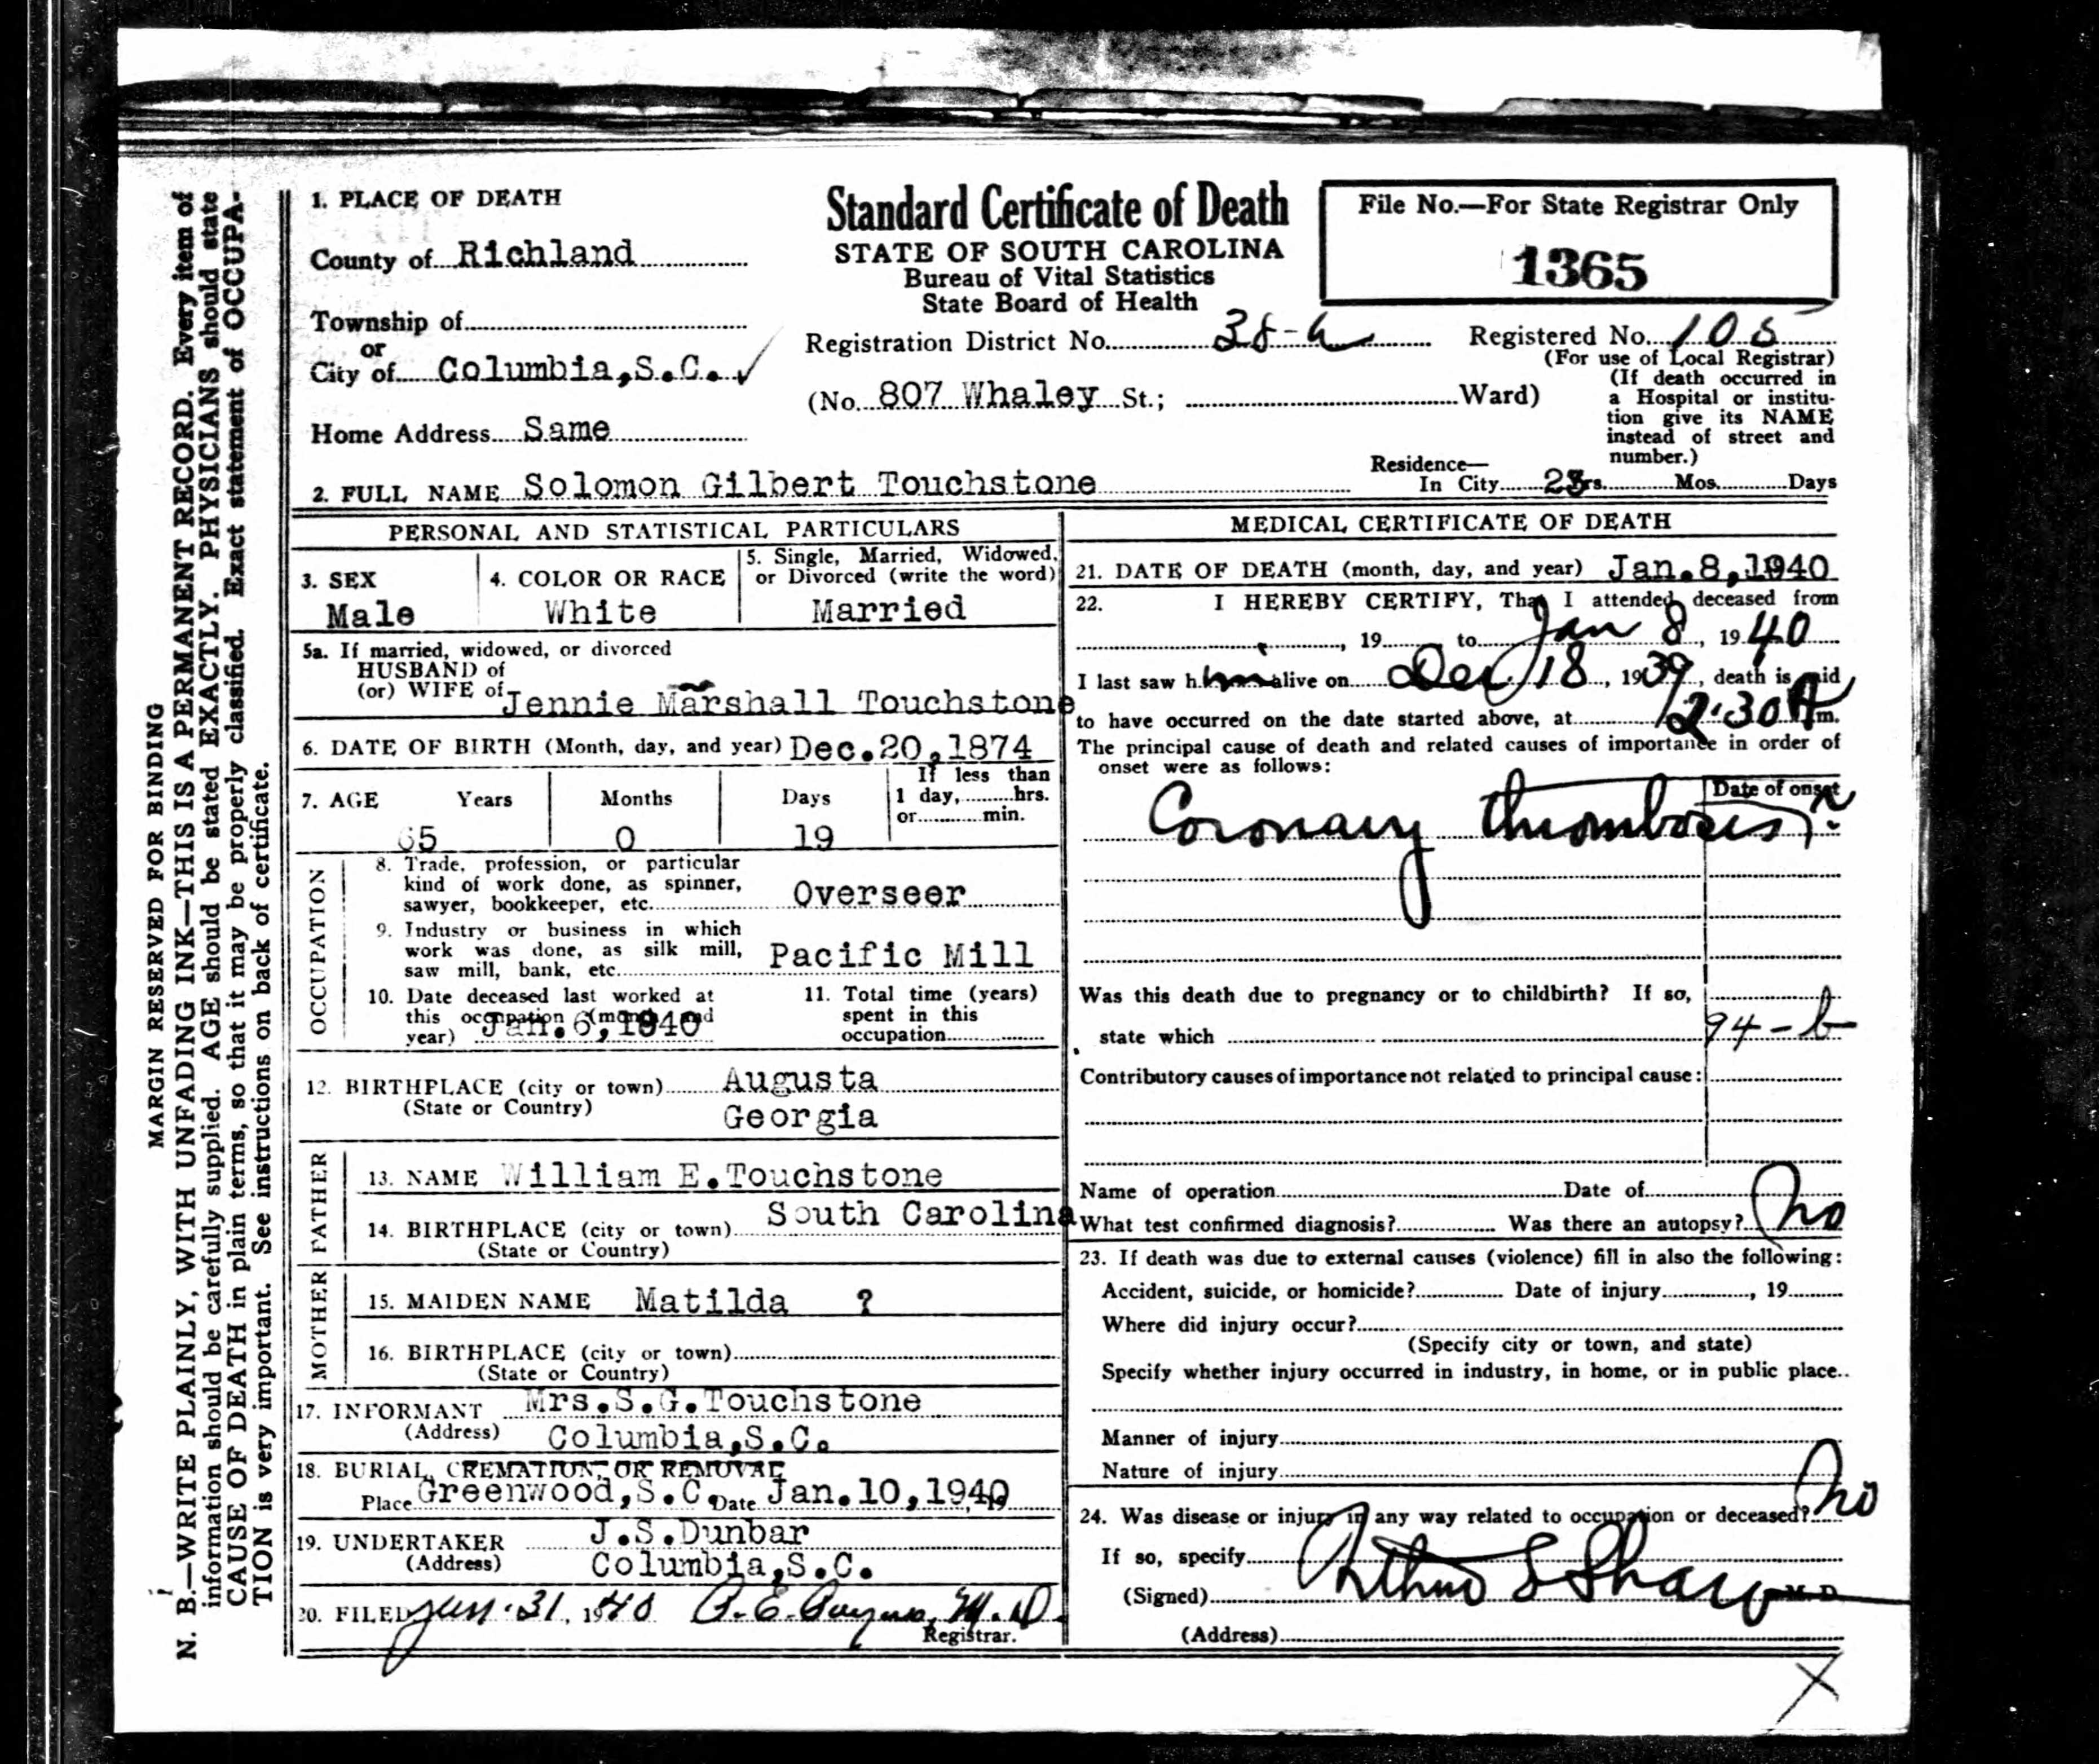 N. B.—WRITE PLAINLY, WITH UNFADING INK—THIS IS A PERMANENT RECORD. Every item of
information should be carefully supplied. AGE should be stated EXACTLY. PHYSICIANS should state
CAUSE OF DEATH in plain terms, so that it may be properly classified. Exact statement of OCCUPA-
TION is very important. See instructions on back of certificate.
MARGIN RESERVED FOR BINDING
Standard Certificate of Death
STATE OF SOUTH CAROLINA
Bureau of Vital Statistics
State Board of Health
File No.—For State Registrar Only
1365
1. PLACE OF DEATH
County of Richland
Township of
or
City of Columbia,S.C.
Home Address Same
Registration District No. 38-a
(No. 807 Whaley St.; Ward)
Registered No. 105
(For use of Local Registrar)
(If death occurred in
a Hospital or institu-
tion give its NAME
instead of street and
number.)
2. FULL NAME Solomon Gilbert Touchstone
Residence—
In City Yrs. Mos. Days
PERSONAL AND STATISTICAL PARTICULARS
3. SEX
Male
4. COLOR OR RACE
White
5. Single, Married, Widowed,
or Divorced (write the word)
Married
5a. If married, widowed, or divorced
HUSBAND of
(or) WIFE of Jennie Marshall Touchstone
6. DATE OF BIRTH (Month, day, and year) Dec.20,1874
7. AGE Years Months Days
If less than
1 day, hrs.
or min.
65 0 19
OCCUPATION
8. Trade, profession, or particular
kind of work done, as spinner,
sawyer, bookkeeper, etc. Overseer
9. Industry or business in which
work was done, as silk mill,
saw mill, bank, etc. Pacific Mill
10. Date deceased last worked at
this occupation (month and
year) Jan.6,1940
11. Total time (years)
spent in this
occupation
12. BIRTHPLACE (city or town) Augusta
(State or Country) Georgia
FATHER
13. NAME William E.Touchstone
14. BIRTHPLACE (city or town) South Carolina
(State or Country)
MOTHER
15. MAIDEN NAME Matilda ?
16. BIRTHPLACE (city or town)
(State or Country)
17. INFORMANT Mrs.S.G.Touchstone
(Address) Columbia,S.C.
18. BURIAL, CREMATION, OR REMOVAL
Place Greenwood,S.C. Date Jan.10,1940
19. UNDERTAKER J.S.Dunbar
(Address) Columbia,S.C.
20. FILED Jan. 31, 1940 M.D.
Registrar.
MEDICAL CERTIFICATE OF DEATH
21. DATE OF DEATH (month, day, and year) Jan.8,1940
22. I HEREBY CERTIFY, That I attended deceased from
, 19 to Jan 8, 1940
I last saw him alive on Dec 18, 1939, death is said
to have occurred on the date started above, at 12:30 A m.
The principal cause of death and related causes of importance in order of
onset were as follows:
Date of onset
Coronary thrombosis ?
Was this death due to pregnancy or to childbirth? If so,
state which
94-b
Contributory causes of importance not related to principal cause:
Name of operation Date of
What test confirmed diagnosis? Was there an autopsy? no
23. If death was due to external causes (violence) fill in also the following:
Accident, suicide, or homicide? Date of injury , 19
Where did injury occur?
(Specify city or town, and state)
Specify whether injury occurred in industry, in home, or in public place..
Manner of injury
Nature of injury
24. Was disease or injury in any way related to occupation or deceased? no
If so, specify
(Signed) Arthur L Shaw M. D.
(Address)
X